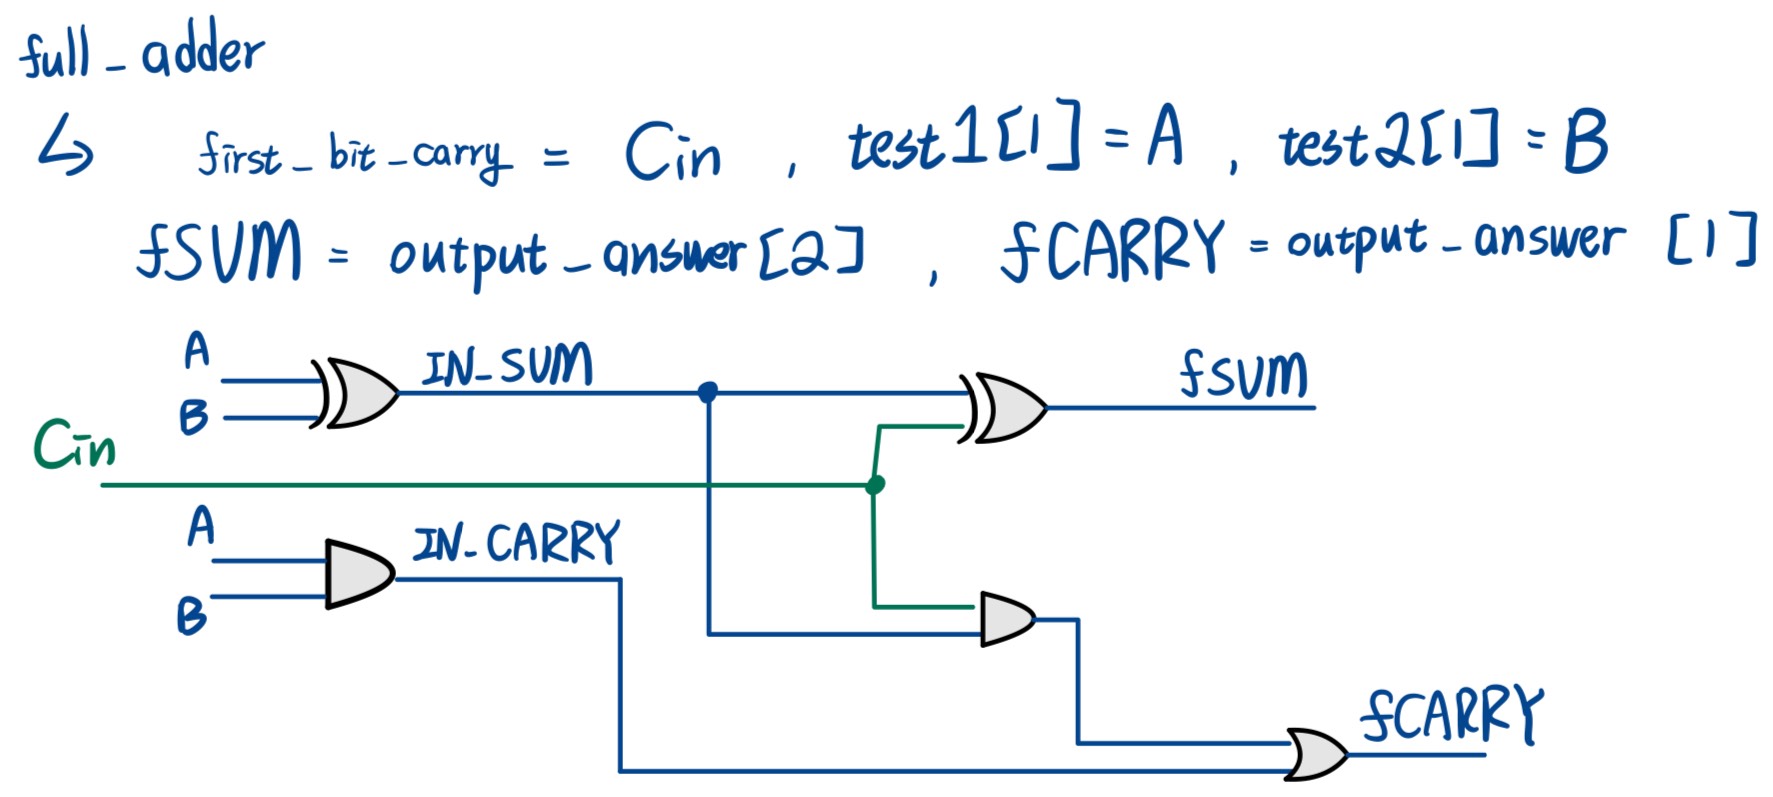 full_adder
↳ first_bit_carry = Cin , test1[1] = A , test2[1] = B
fSUM = output_answer[2] , fCARRY = output_answer [1]
A
IN_SUM
fSUM
B
Cin
A
IN_CARRY
B
fCARRY